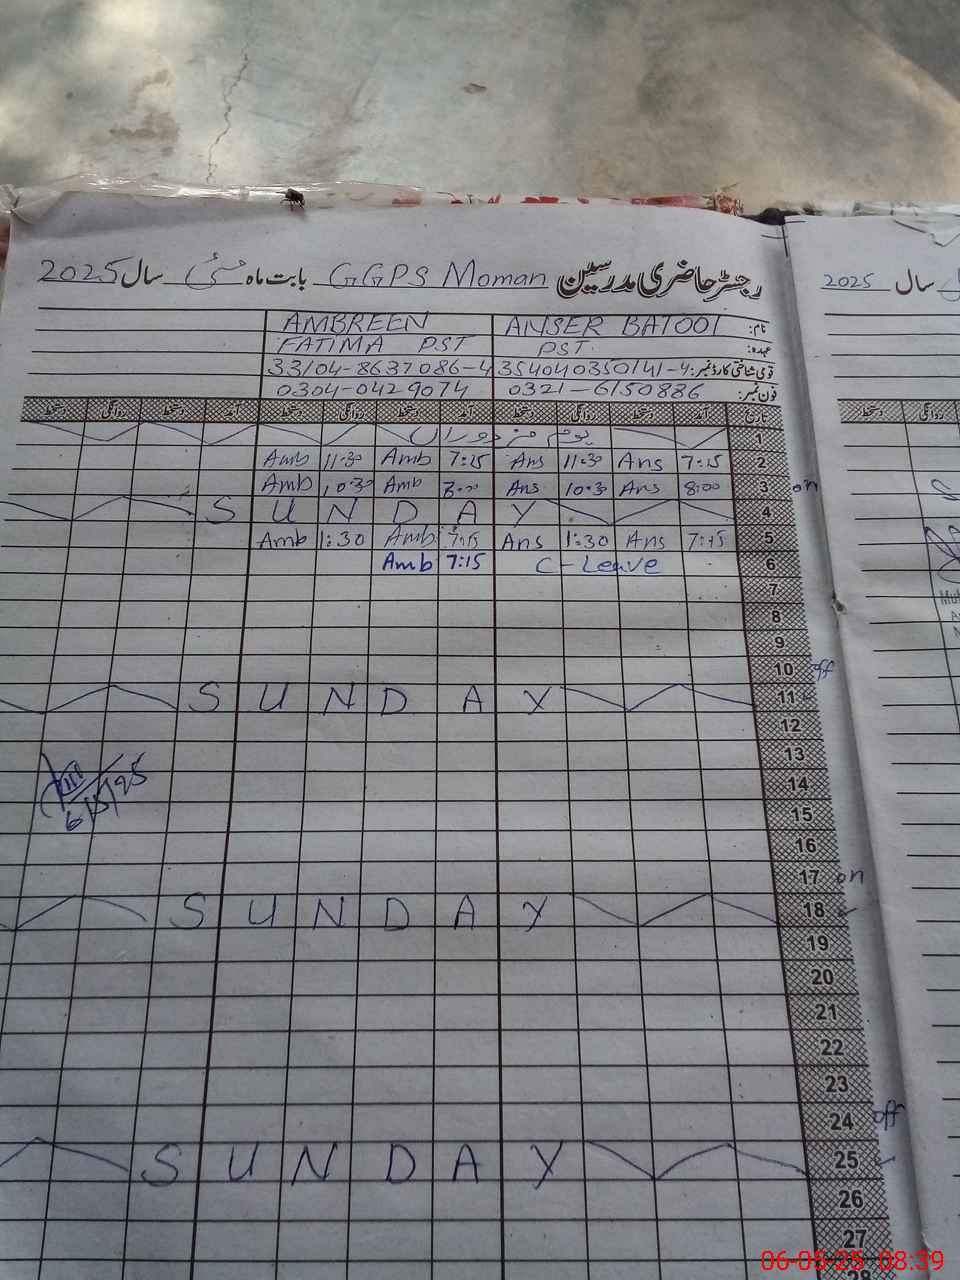 رجسٹر حاضری مدرسین GGPS Moman بابت ماہ مئی سال 2025
سال 2025
نام: ANSER BATOOL AMBREEN
عہدہ: PST. FATIMA PST
قومی شناختی کارڈ نمبر: 35404035014 1-4 33104-8637086-4
فون نمبر: 0321-6150886 0304-0429074
تاریخ آمد دستخط روانگی دستخط آمد دستخط روانگی دستخط آمد دستخط روانگی دستخط
روانگی دستخط
1 یوم مزدوراں
2 7:15 Ans 11:30 Ans 7:15 Amb 11:30 Amb
3 8:00 Ans 10:30 Ans 8:00 Amb 10:30 Amb on
4 SUNDAY
5 7:15 Ans 1:30 Ans 7:15 Amb 1:30 Amb
6 C-Leave 7:15 Amb
7
8
9
10 off
11 SUNDAY
12
13
14
6/5/25
15
16
17 on
18 SUNDAY
19
20
21
22
23
24 off
25 SUNDAY
26
27
28
06-05-25 08:39